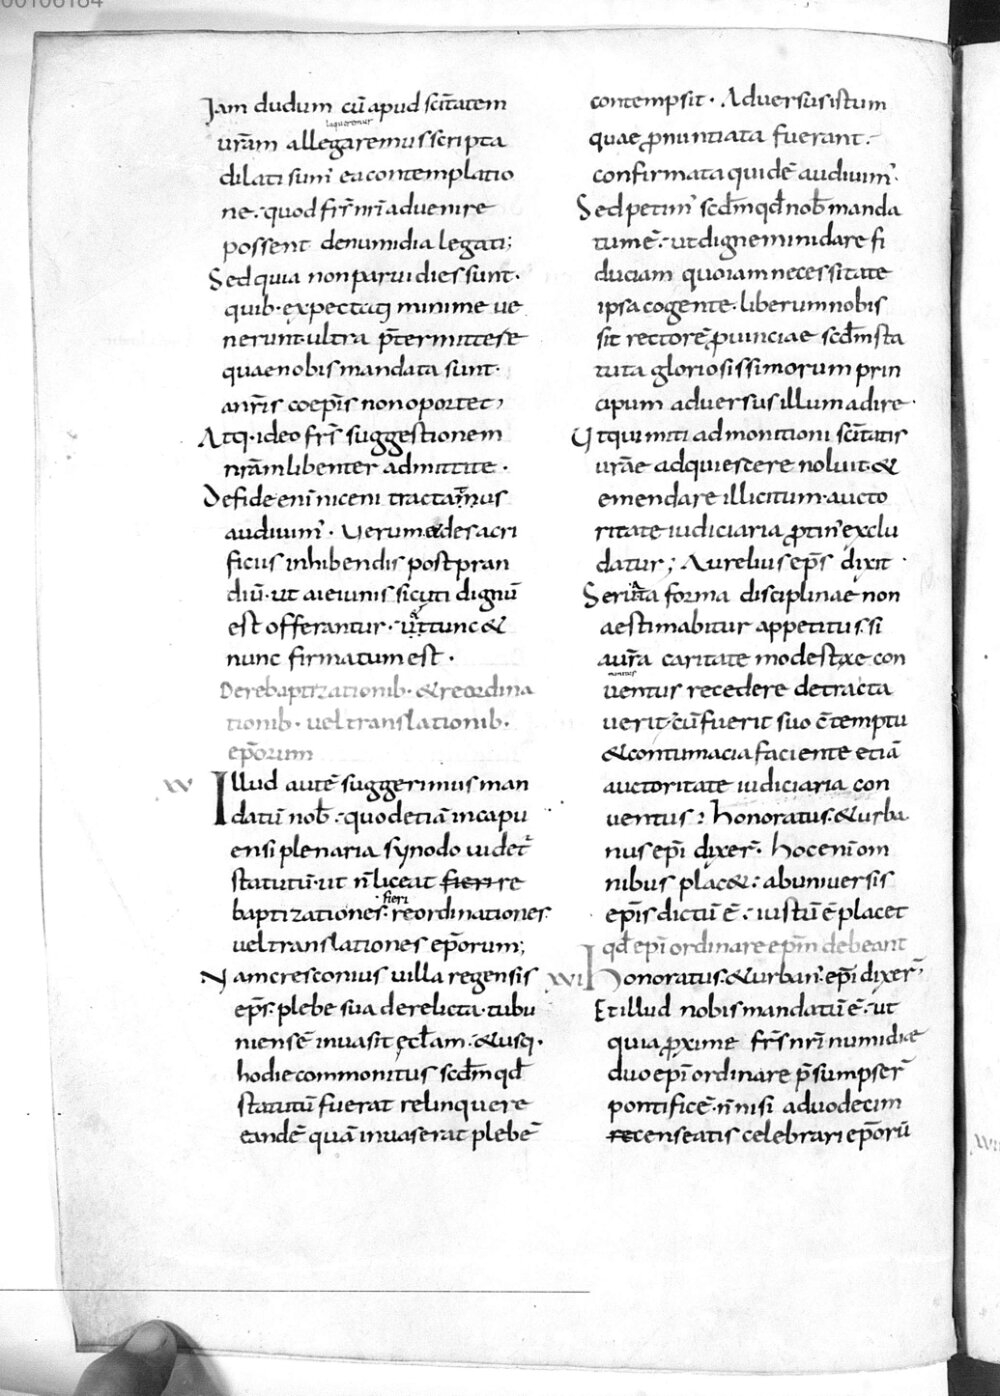 Iam dudum cū apud sc̄itatem
loqueremur
ur̄am allegaremus scripta
dilati sum̄ ea contemplatio
ne· quod fr̄s nr̄i aduenire
possent denumidia legati;
Sed quia non parui dies sunt·
quib· expectati minime ue
nerunt· ultra p̄termittere
quae nobis mandata sunt·
anr̄is coep̄is non oportet,
Atq· ideo fr̄s suggestionem
nr̄am libenter admittite·
De fide eni niceni tractatus
audiuim̄· Uerum & de sacri
ficiis inhibendis post pran
diū· ut aieiunis sicuti dignū
est offerantur· & tunc &
nunc firmatum est·
De rebaptizationib· & reordina
tionib· uel translationib·
ep̄orum
Illud autē suggerimus man
datū nob̄· quod etiā in capu
ensi plenaria synodo uidet̄
statutū· ut n̄ liceat fieri re
fieri
baptizationes· reordinationes
uel translationes ep̄orum;
Nam cresconius uilla regensis
ep̄s· plebe sua derelicta· tubu
niensē inuasit eccl̄am· & usq·
hodie commonitus scd̄m qd̄
statutū fuerat relinquere
eandē quā inuaserat plebē
contempsit· Aduersus istum
quae pnuntiata fuerant·
confirmata quidē audiuim̄·
Sed petim̄ scd̄m qd̄ nob̄ manda
tum ē· ut dignemini dare fi
duciam quo iam necessitate
ipsa cogente· liberum nobis
sit rectorē puinciae scd̄m sta
tuta gloriosissimorum prin
cipum aduersus illum adire·
Ut qui miti admonitioni sc̄itatis
ur̄ae adquiescere noluit &
emendare illicitum· aucto
ritate iudiciaria ptin̄ exclu
datur; Aurelius ep̄s dixit·
Seruata forma disciplinae non
aestimabitur appetitus· si
aur̄a caritate modestae con
monitus
uentus recedere detracta
uerit· cū fuerit suo c̄temptu
& contumacia faciente etiā
auctoritate iudiciaria con
uentus: honoratus· & urba
nus ep̄i dixer̄· hoc eni om
nibus plac&· ab uniuersis
ep̄is dictū ē· iustū ē placet
qd̄ ep̄i ordinare ep̄m debeant
Honoratus· & urban̄· ep̄i dixer̄·
Et illud nobis mandatū ē· ut
quia pxime fr̄s nr̄i numidiae
duo ep̄i ordinare p̄sumpser̄
pontificē· n̄ nisi a duodecim
censeatis celebrari ep̄orū